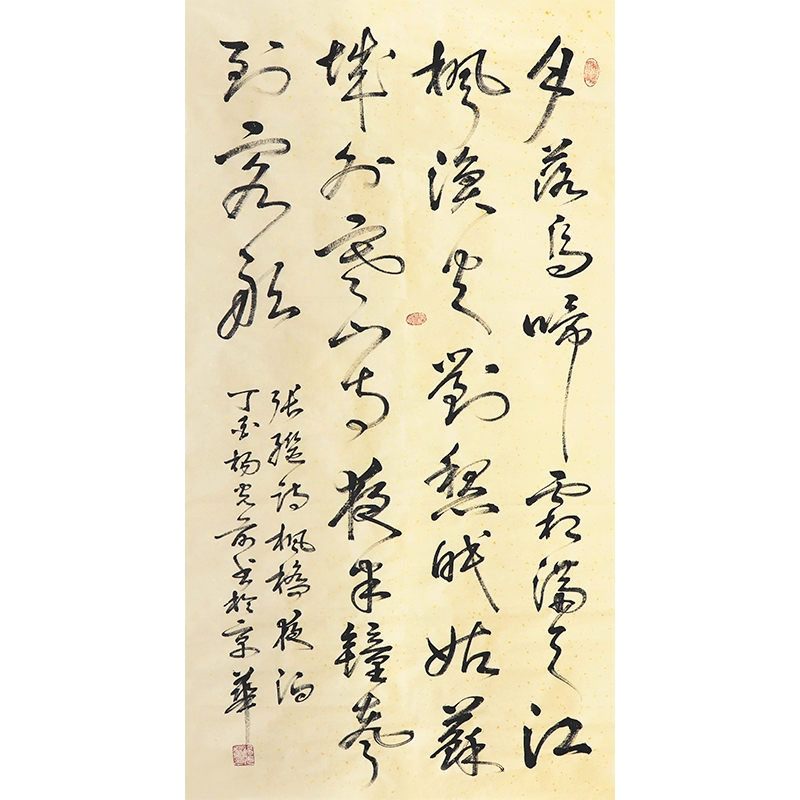 月落烏啼霜滿天江
楓漁火對愁眠姑蘇
城外寒山寺夜半鐘聲
到客船
張繼詩楓橋夜泊
丁酉楊光前書於京華